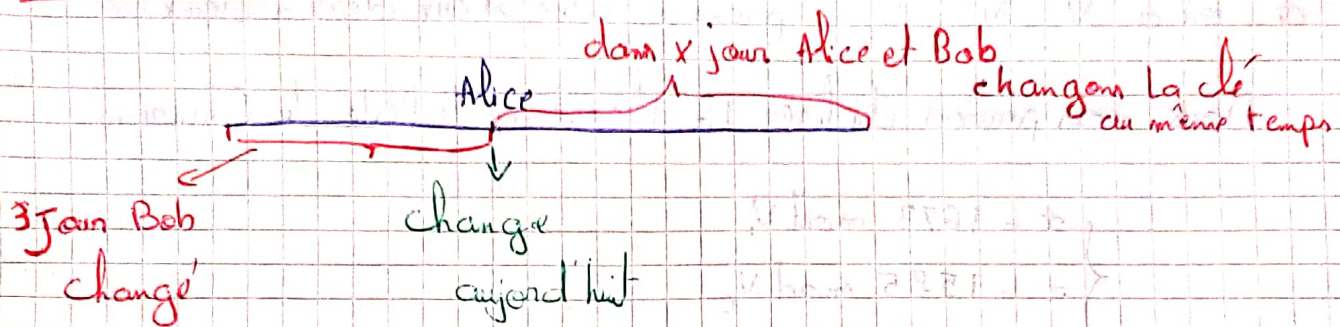 dans x jour Alice et Bob
changons la clé
au même temps
Alice
3 Jour Bob
changé
change
aujord'hui